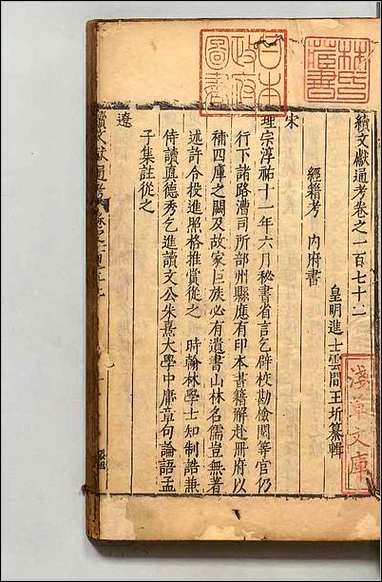 續文獻通考卷之一百七十二
皇明進士雲間王圻纂輯
經籍考 內府書
宋
理宗淳祐十一年六月秘書省言乞辟校勘檢閱等官仍
行下諸路漕司所部州縣應有印本書籍解赴冊府以
補四庫之闕及故家巨族必有遺書山林名儒豈無著
述許令投進照格推賞從之 時翰林學士知制誥兼
侍讀真德秀乞進讀文公朱熹大學中庸章句論語孟
子集註從之
遼
續文獻通考
林氏藏書
日本政府圖書
淺草文庫